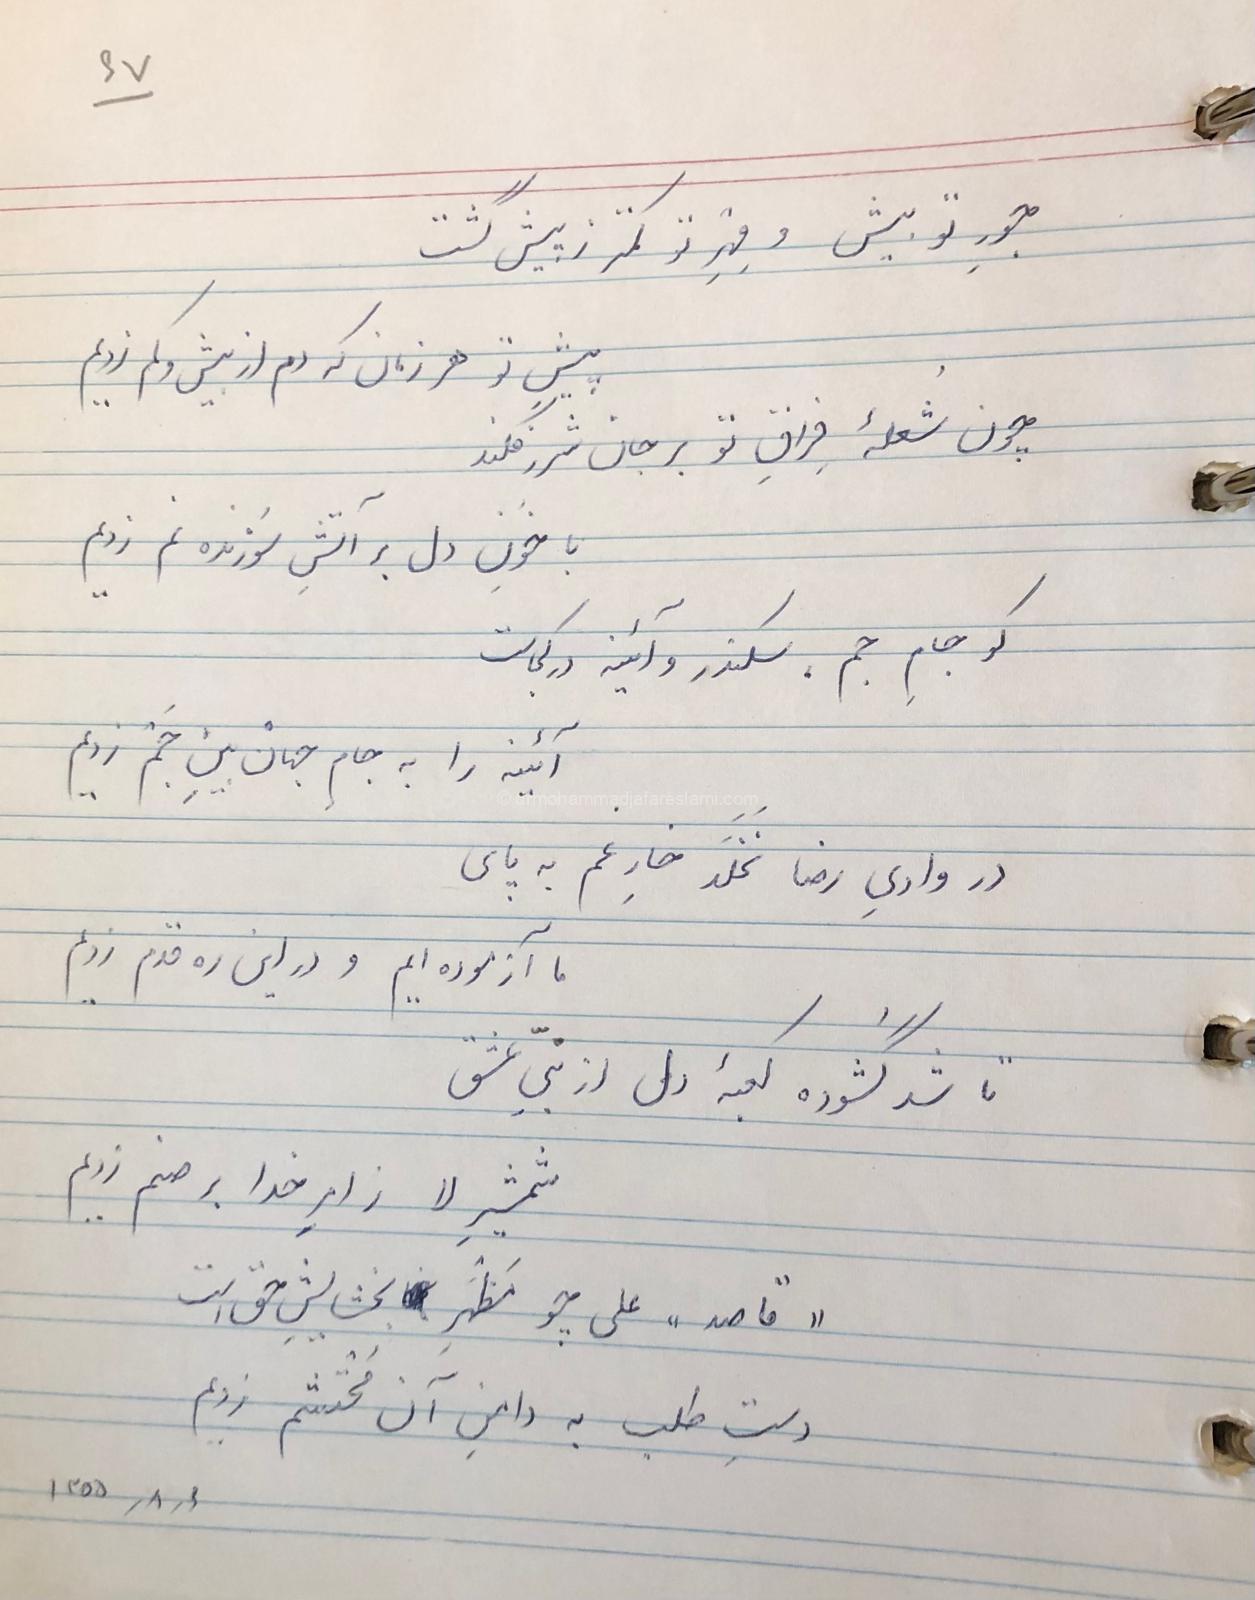 ۶۷
جورِ تو بیش و مِهرِ تو کمتر ز پیش گشت
پیشِ تو هر زمان که دم از بیش و کم زدیم
چون شُعلهٔ فِراقِ تو بر جان شرر فکند
با خونِ دل بر آتشِ سوزنده نم زدیم
کو جامِ جم، سکندر و آئینه در کجاست
آئینه را به جامِ جهانْ بینِ جَمْ زدیم
در وادیِ رضا نَخَلَد خارِ غم به پای
ما آزموده ایم و در این ره قدم زدیم
© drmohammadjafareslami.com
تا شد گشوده کعبهٔ دل از نبّیِ عشق
شمشیرِ لا ز امرِ خدا بر صنم زدیم
"قاصد" علی چو مَظْهَرِ بخشایشِ حق است
دستِ طلب به دامنِ آن مُحْتَشَم زدیم
۶ر۸ر۱۳۵۵